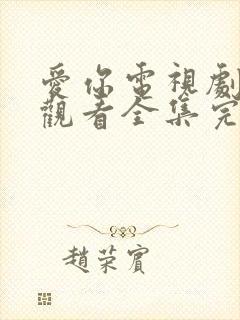 愛你電視劇
觀看全集完
趙荣賓